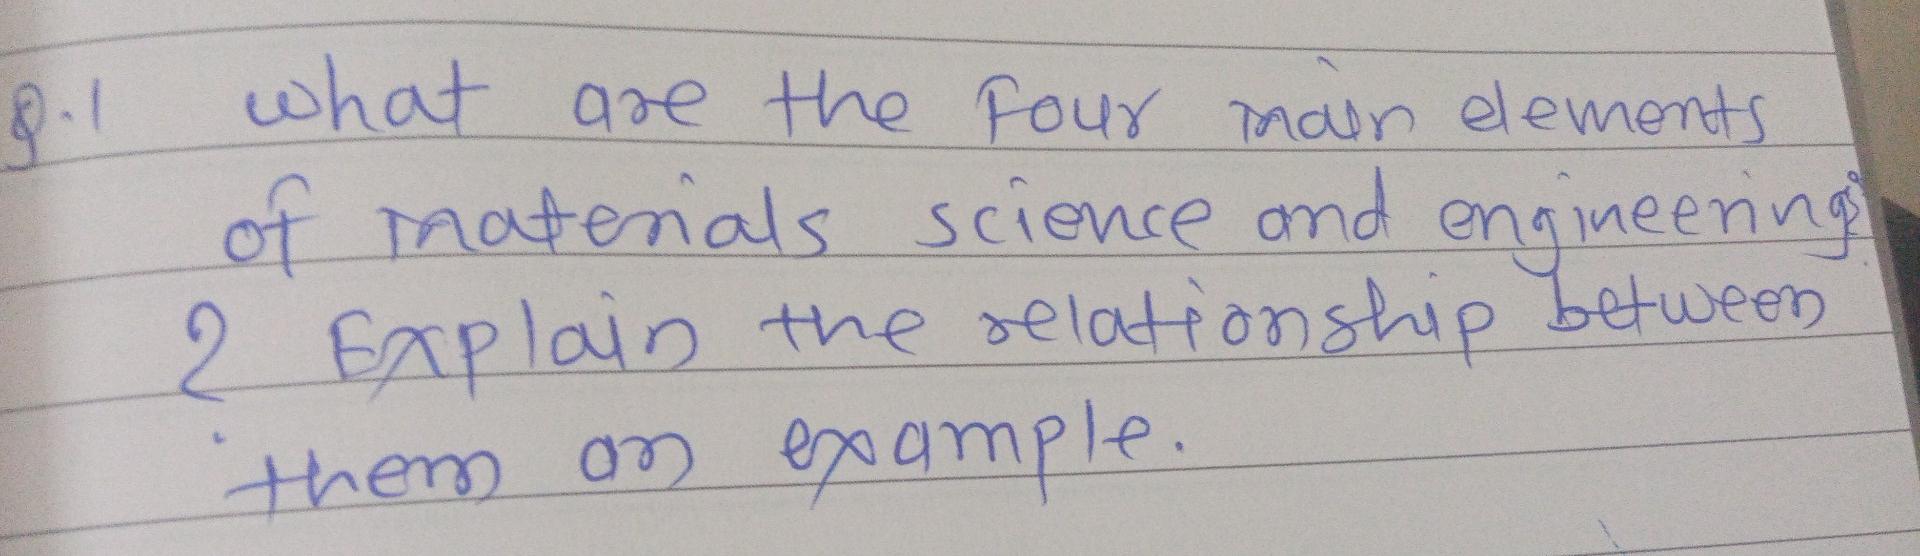 Q.1 what are the four main elements
of materials science and engineering
? Explain the relationship between
them an example.